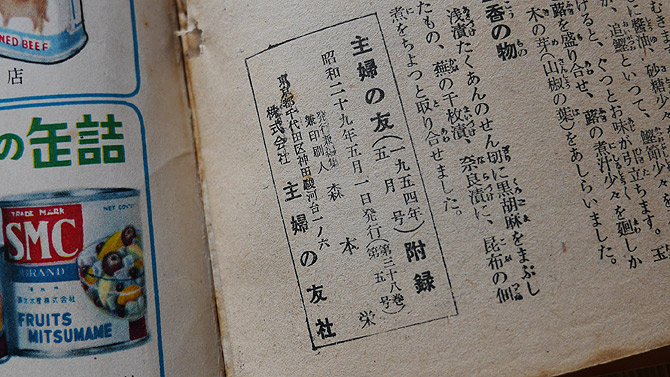 に醤油、砂糖少々
追鰹といって、鰹節少々
けると、ぐっとお味が引き立ちます。玉
蕗を盛り合せ、蕗の煮汁少々を廻しか
木の芽(山椒の葉)をあしらいました。
香の物
浅漬たくあんのせん切に黒胡麻をまぶし
たもの、蕪の千枚漬、奈良漬に、昆布の佃
煮をちょっと取り合せました。
主婦の友(一九五四年五月号)附録
昭和二十九年五月一日発行(第三十八巻第五号)
発行兼編集兼印刷人 森本栄
東京都千代田区神田駿河台一ノ六
株式会社 主婦の友社
NED BEEF
店
の缶詰
TRADE MARK
SMC
BRAND
株式会社
FRUITS
MITSUMAME